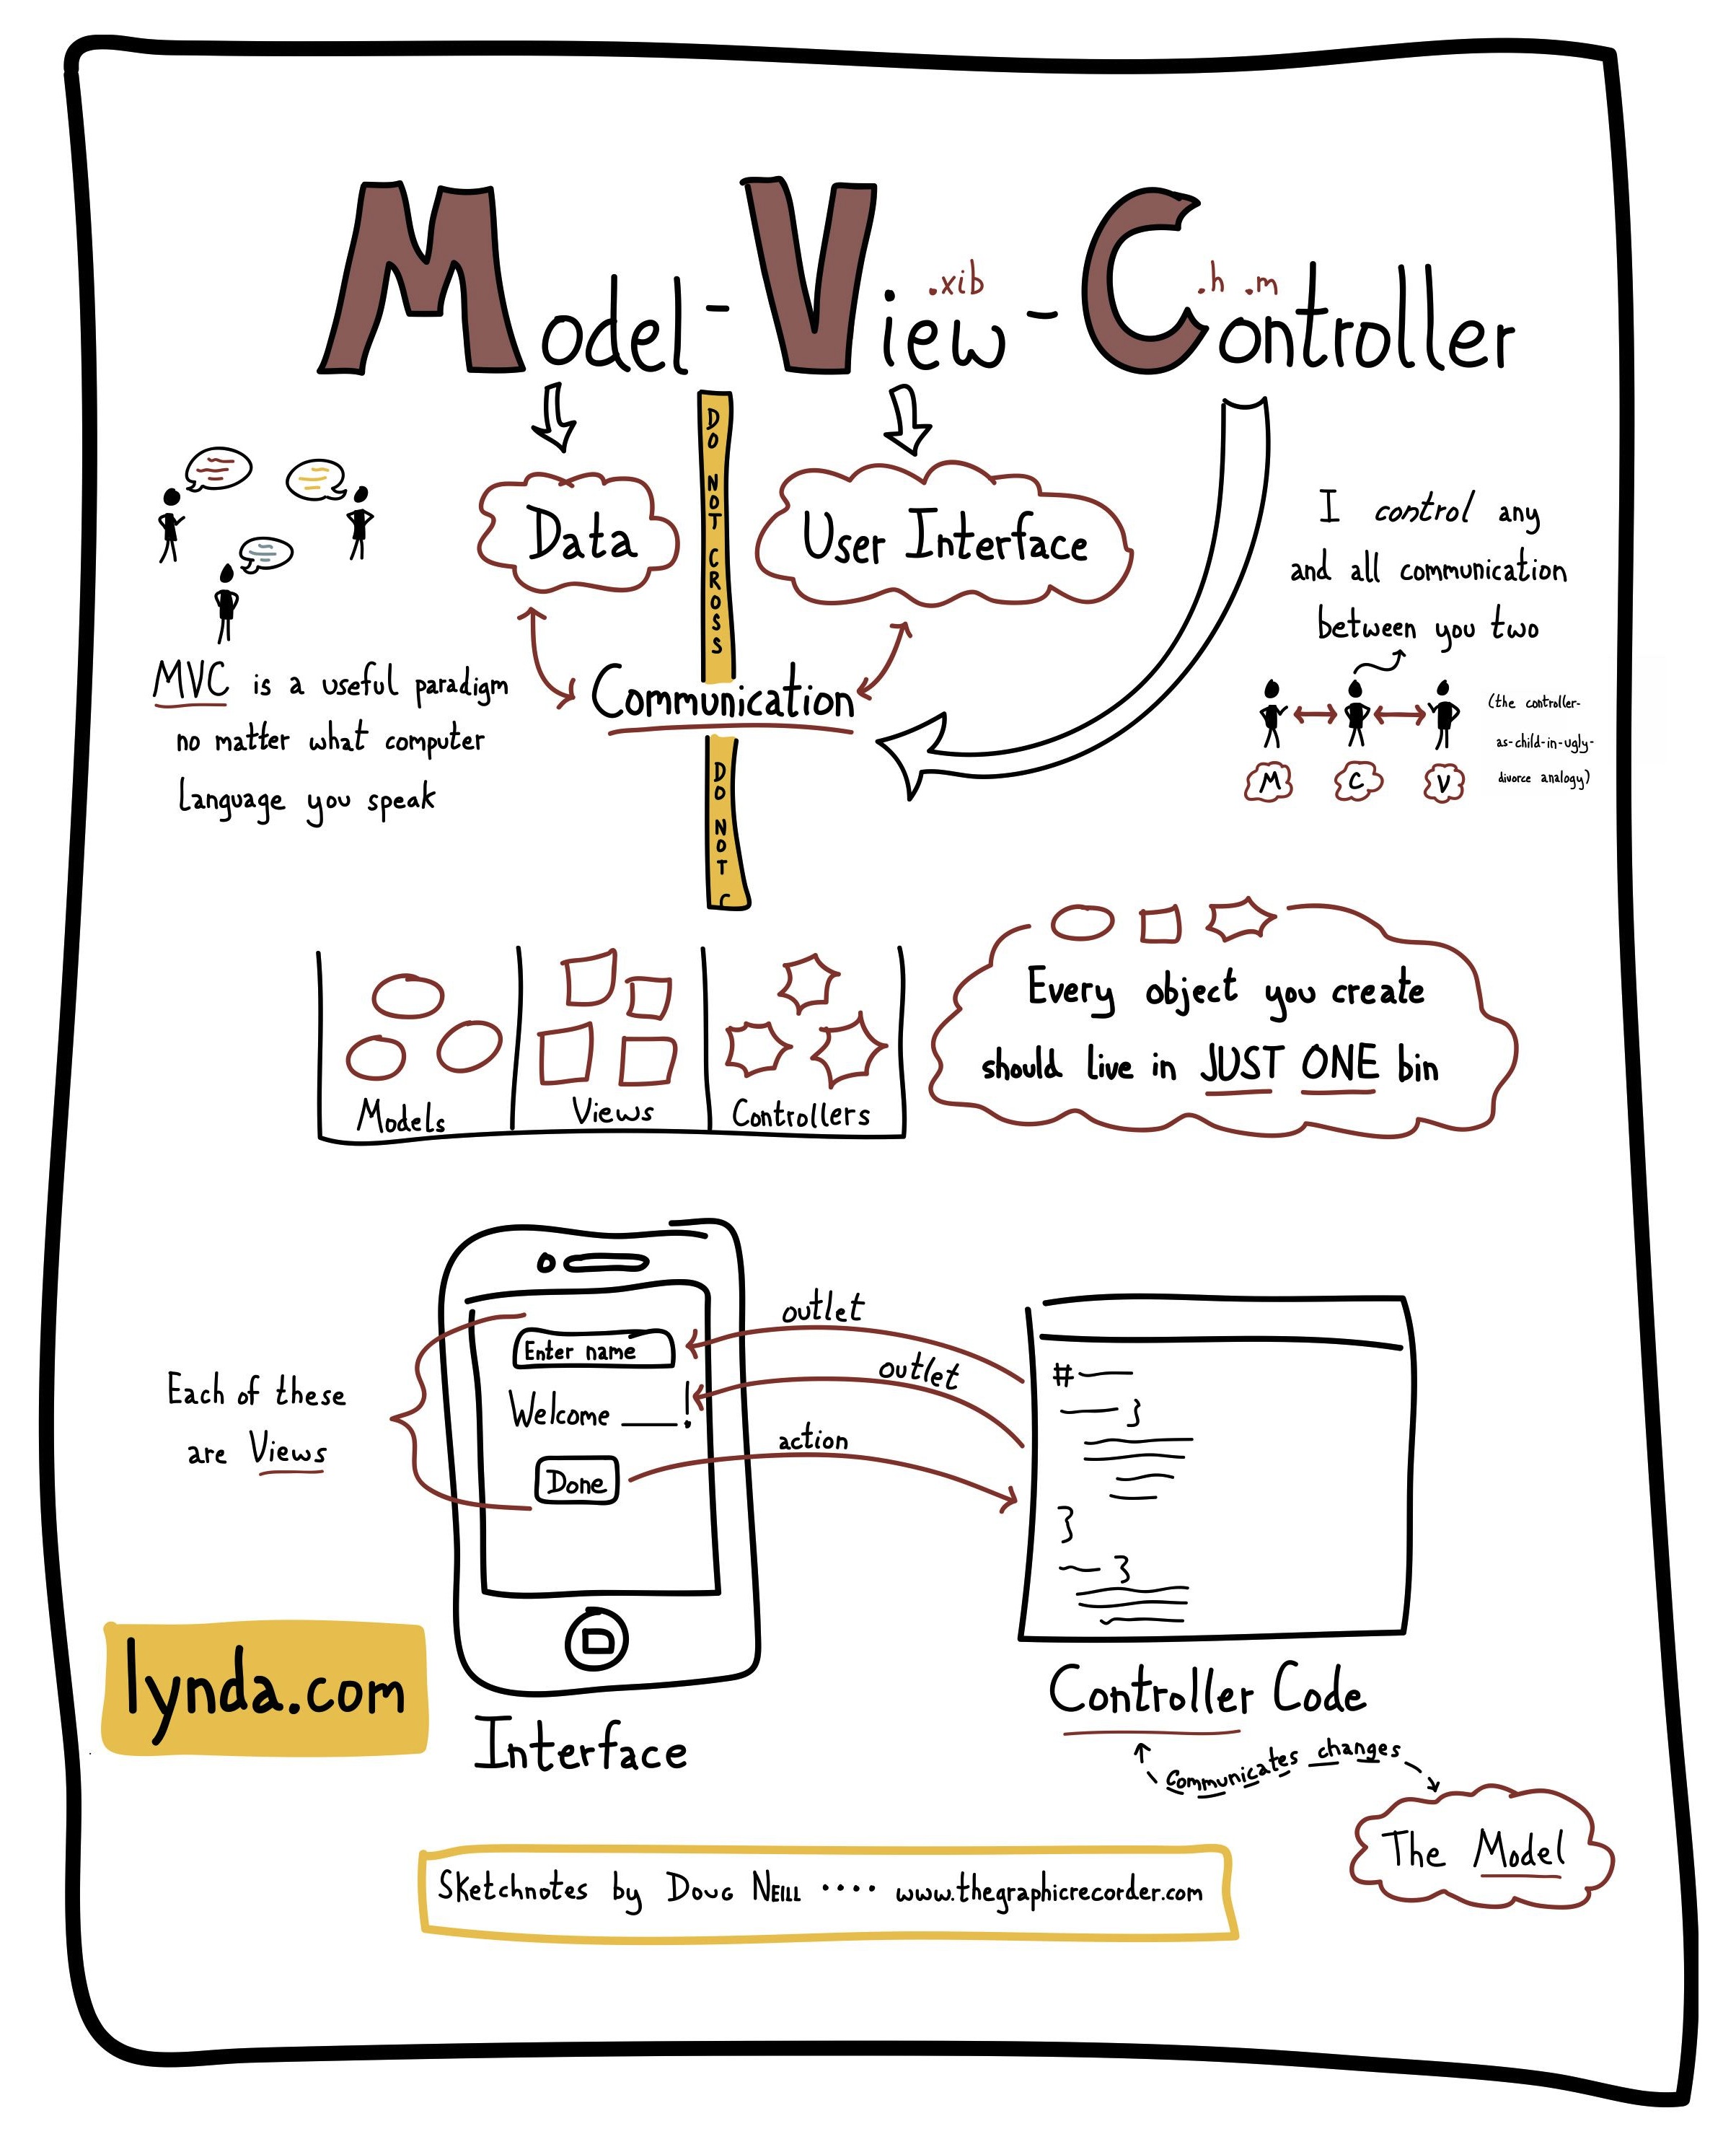 Model - View - Controller
.xib
.h .m
DO NOT CROSS
Data
User Interface
I control any
and all communication
between you two
MVC is a useful paradigm
no matter what computer
language you speak
Communication
(the controller-
as-child-in-ugly-
divorce analogy)
M C V
DO NOT C
Every object you create
should live in JUST ONE bin
Models
Views
Controllers
outlet
Enter name
outlet
Welcome ____!
action
Done
Each of these
are Views
#
}
}
}
lynda.com
Interface
Controller Code
communicates changes
The Model
Sketchnotes by Doug Neill .... www.thegraphicrecorder.com